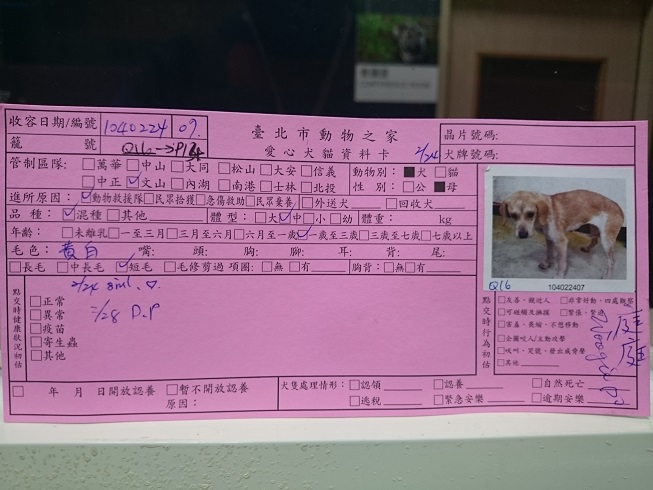 收容日期/編號 1040224 09.
臺北市動物之家
晶片號碼:
籠 號 Q16→P12
愛心犬貓資料卡 2/24
犬牌號碼:
管制區隊: □萬華 □中山 □大同 □松山 □大安 □信義 動物別: ■犬 □貓
□中正 ☑文山 □內湖 □南港 □士林 □北投 性 別: □公 ■母
進所原因: ☑動物救援隊 □民眾拾獲 □急傷救助 □民眾棄養 □外送犬 □回收犬
品 種: ☑混種 □其他 體 型: □大 ☑中 □小 □幼 體重: kg
年齡: □未離乳 □一至三月 □三月至六月 □六月至一歲 ☑一歲至三歲 □三歲至七歲 □七歲以上
毛色: 黃白 嘴: 頭: 胸: 腳: 耳: 背: 尾:
□長毛 □中長毛 ☑短毛 □毛修剪過 項圈: □無 □有 胸背: □無 □有
Q16 104022407
點交時健康狀況初估
□正常
□異常
□疫苗
□寄生蟲
□其他
2/24
2/28 D.P
點交時行為初估
□友善、親近人 □非常好動、四處觀察
□可碰觸及擁抱 □緊張、緊迫
□害羞、畏縮、不想移動
□企圖咬人/主動攻擊
□吠叫、哭號、發出威脅聲
□其他
□ 年 月 日開放認養 □暫不開放認養
原因:
犬隻處理情形: □認領 □認養 □自然死亡
□逃脫 □緊急安樂 □逾期安樂